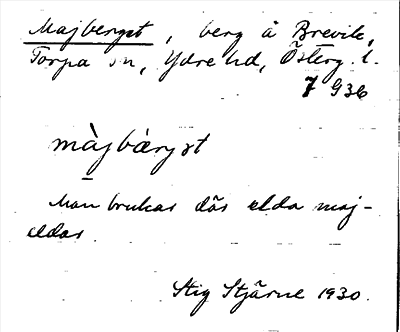 Majberget, berg å Brevik,
Torpa sn, Ydre hd, Österg. l.
7 G36
màjbärgət
Man brukar där elda maj-
eldar
Stig Stjärne 1930.